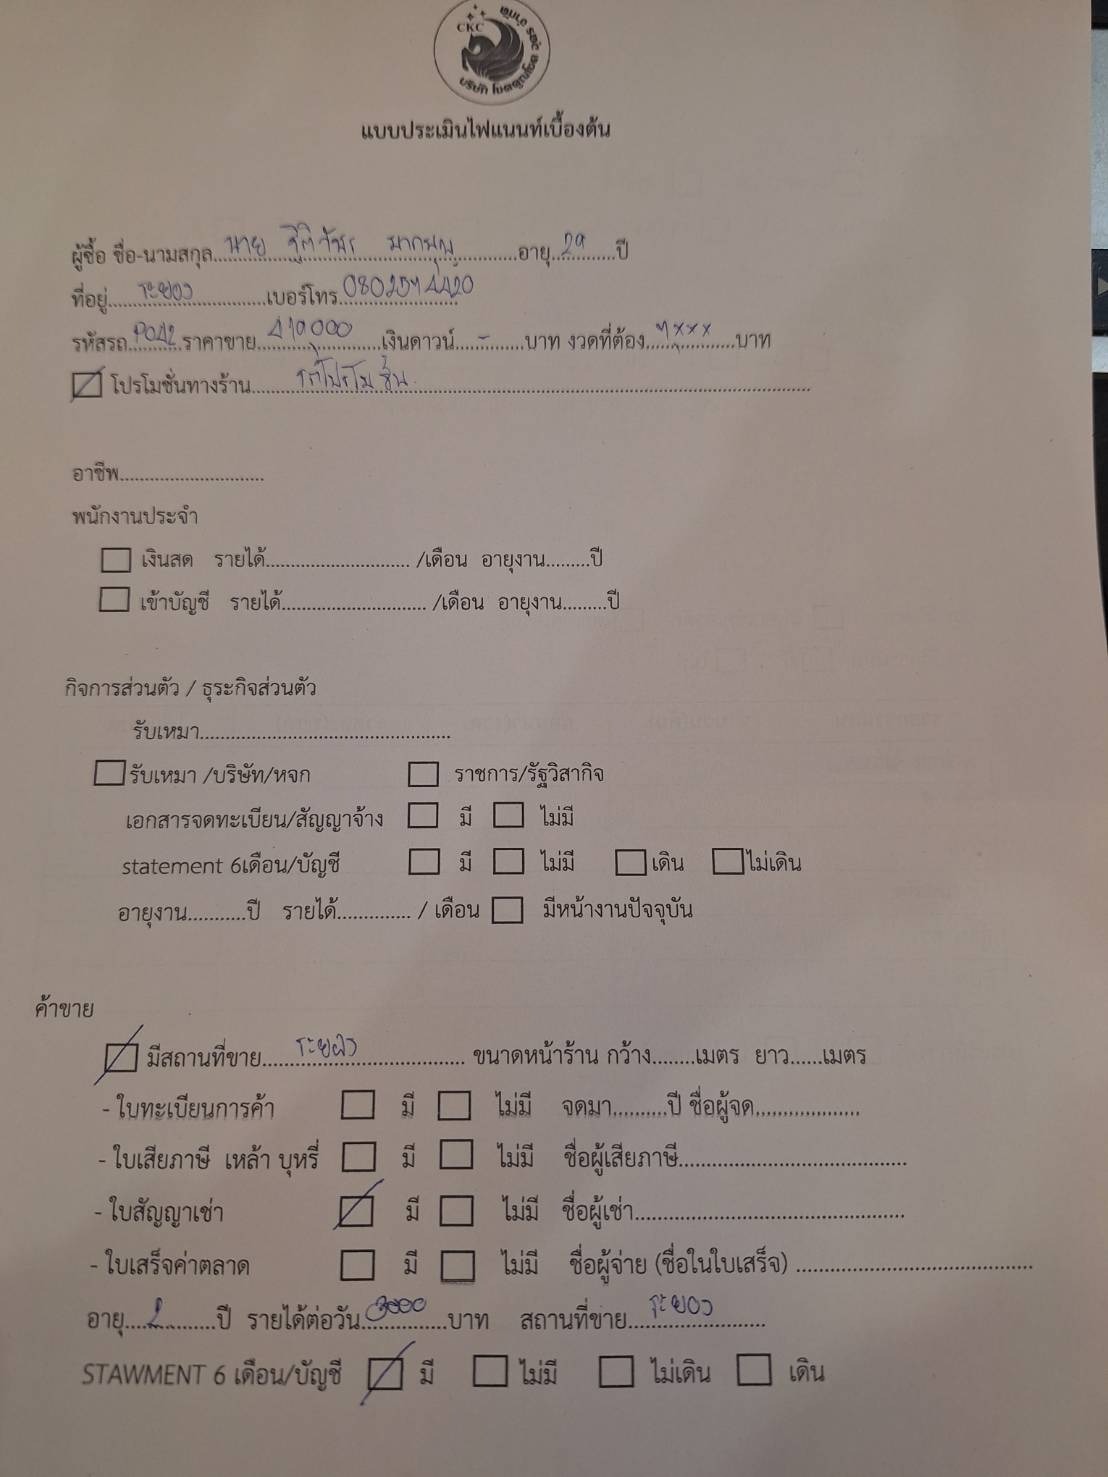 CKC
แบบประเมินไฟแนนท์เบื้องต้น
ผู้ซื้อ ชื่อ-นามสกุล....นาย ฐิติวัชร มากบุญ....อายุ..29..ปี
ที่อยู่....ระยอง....เบอร์โทร....
รหัสรถ.P042.ราคาขาย..419,000..เงินดาวน์...-...บาท งวดที่ต้อง..7,xxx..บาท
โปรโมชั่นทางร้าน....รถโปรโมชั่น....
อาชีพ............
พนักงานประจำ
เงินสด รายได้............ /เดือน อายุงาน.........ปี
เข้าบัญชี รายได้............ /เดือน อายุงาน.........ปี
กิจการส่วนตัว / ธุระกิจส่วนตัว
รับเหมา............
รับเหมา /บริษัท/หจก ราชการ/รัฐวิสากิจ
เอกสารจดทะเบียน/สัญญาจ้าง มี ไม่มี
statement 6เดือน/บัญชี มี ไม่มี เดิน ไม่เดิน
อายุงาน...........ปี รายได้.............. / เดือน มีหน้างานปัจจุบัน
ค้าขาย
มีสถานที่ขาย....ระยอง.... ขนาดหน้าร้าน กว้าง........เมตร ยาว......เมตร
- ใบทะเบียนการค้า มี ไม่มี จดมา..........ปี ชื่อผู้จด..................
- ใบเสียภาษี เหล้า บุหรี่ มี ไม่มี ชื่อผู้เสียภาษี............
- ใบสัญญาเช่า มี ไม่มี ชื่อผู้เช่า............
- ใบเสร็จค่าตลาด มี ไม่มี ชื่อผู้จ่าย (ชื่อในใบเสร็จ) ............
อายุ....2....ปี รายได้ต่อวัน..3000..บาท สถานที่ขาย....ระยอง....
STAWMENT 6 เดือน/บัญชี มี ไม่มี ไม่เดิน เดิน